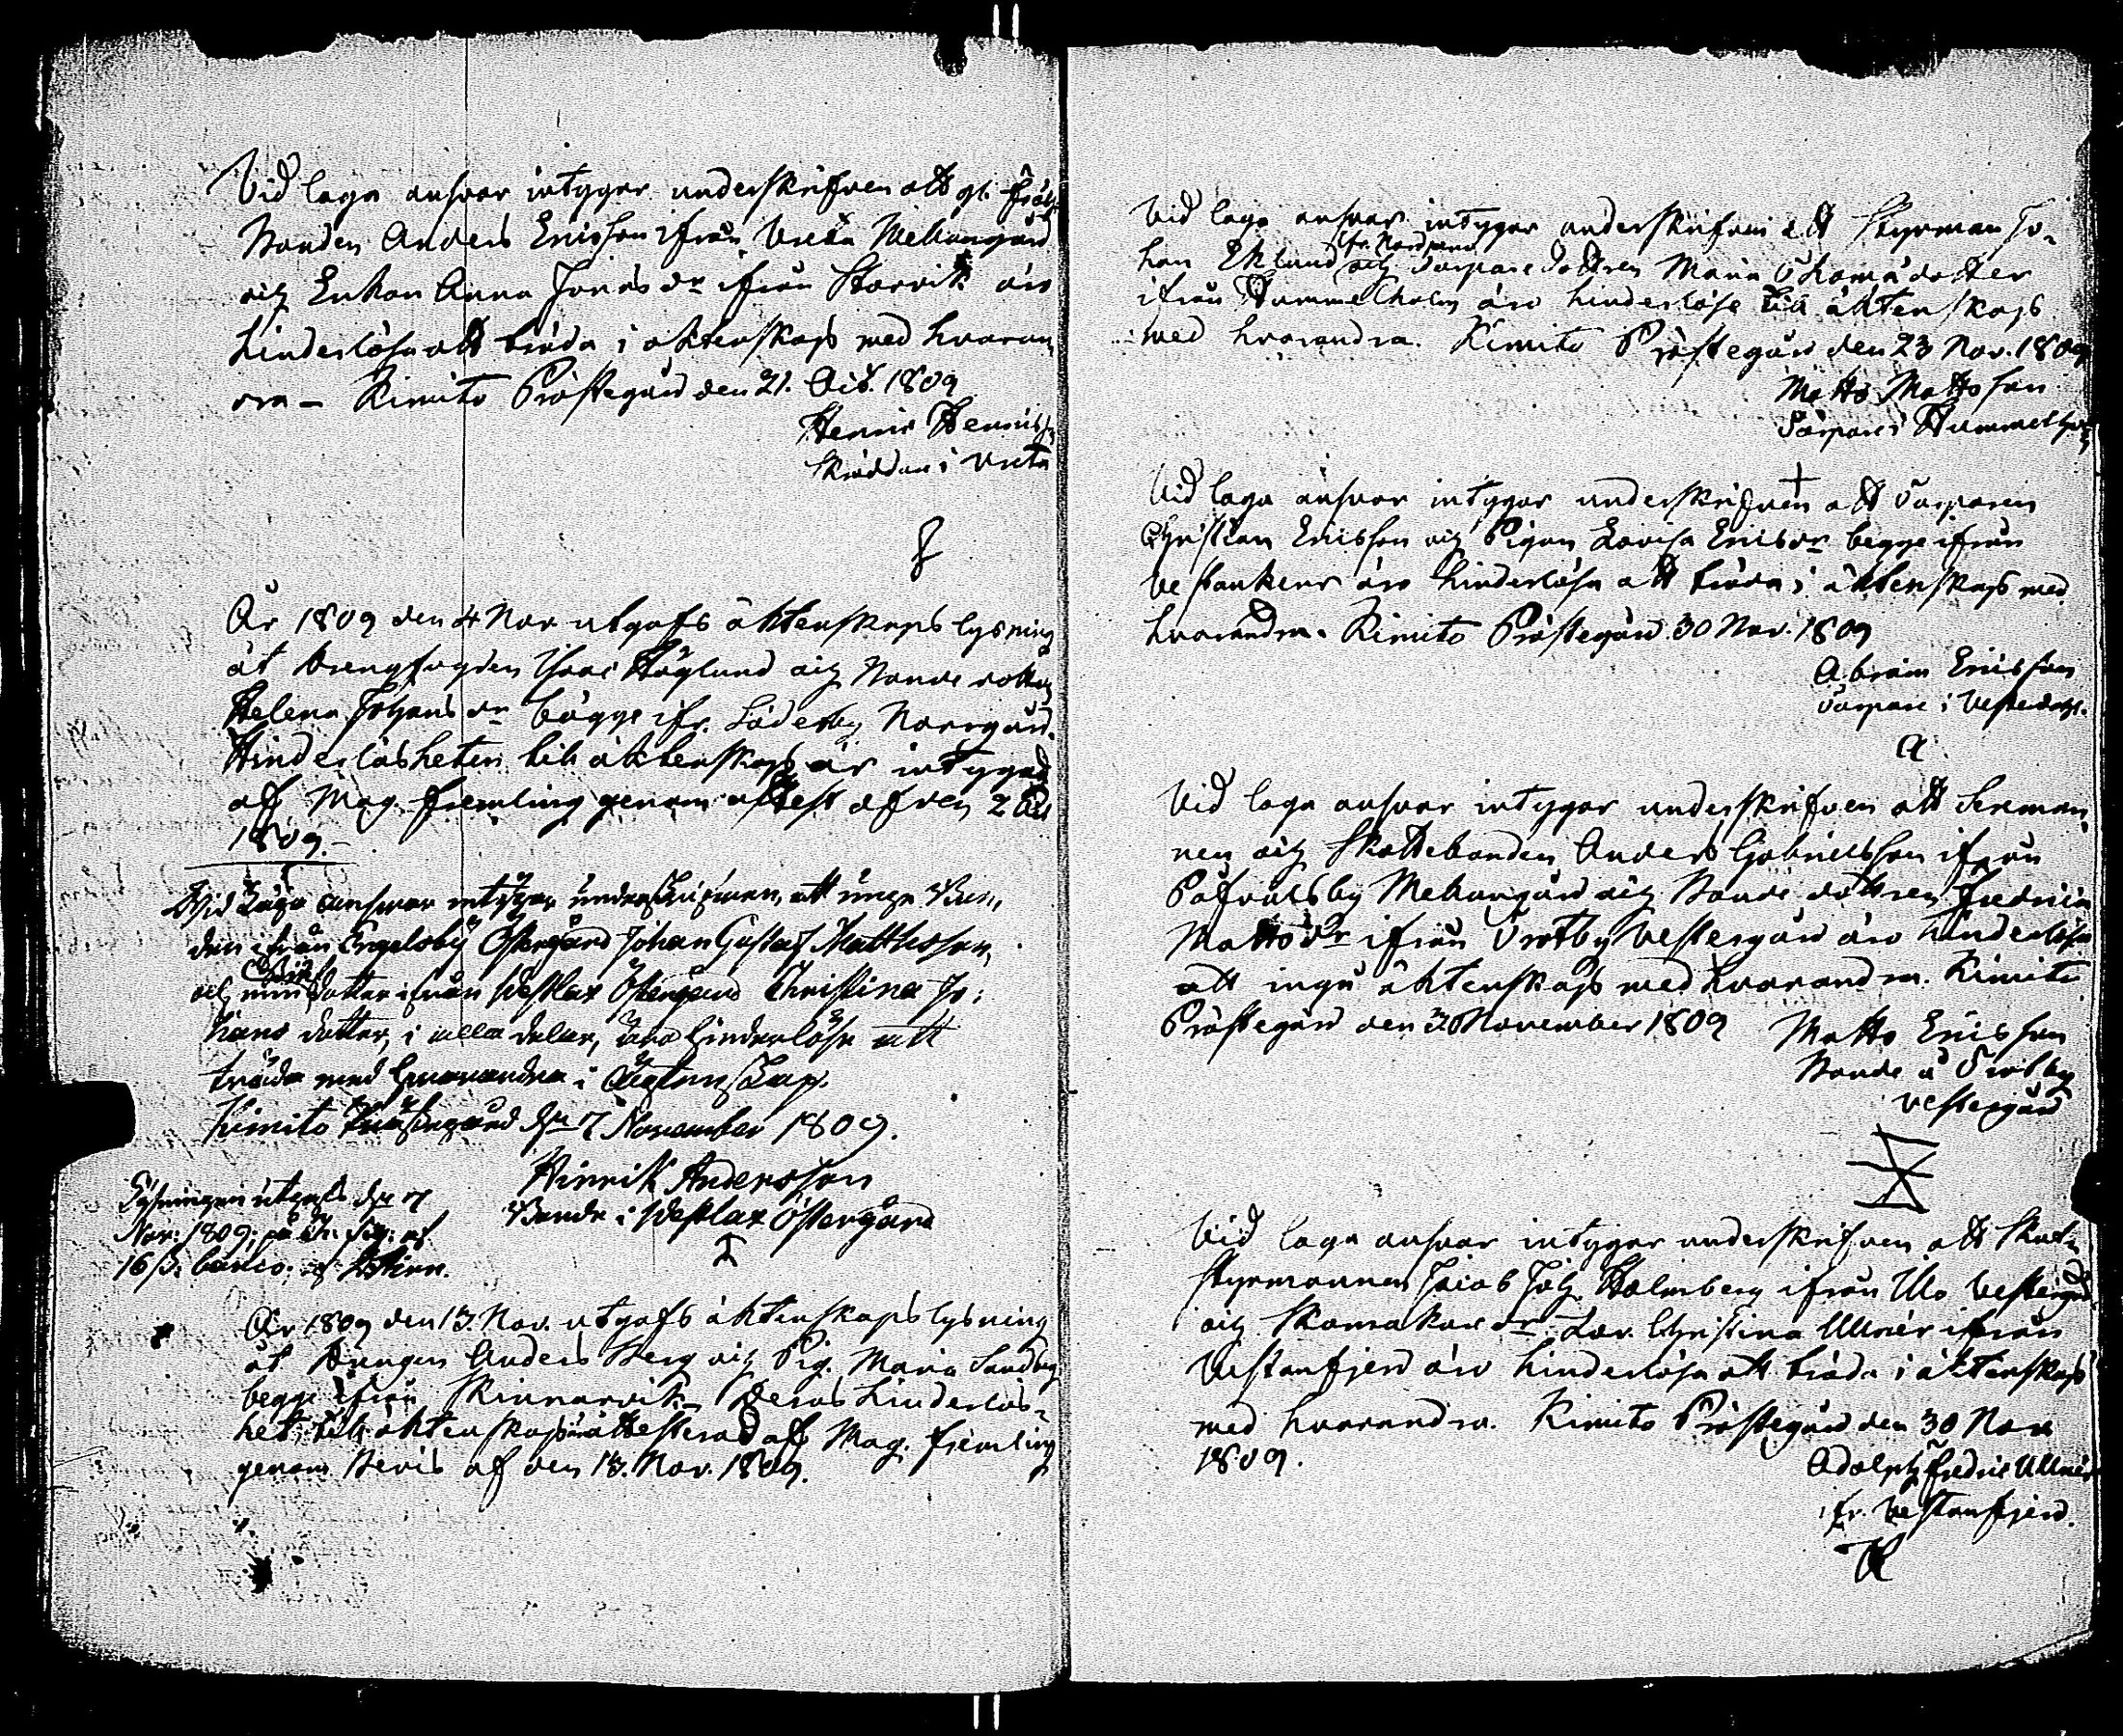 Vid laga ansvar intygar underskrifven att gl. Frälse
Bonden Anders Ericsson ifrån Vreta Mellangård
och Enkan Anna Jonas dr ifrån Storvik äro
hinderlösa att träda i äktenskap med hvaran
dra – Kimito Prästegård den 21. Oct. 1809
Henric Henricss.
Skräddare i Vreta
År 1809 den 4 Nov utgafs äktenskaps lysning
åt Drengfogden Isaac Höglund och Bonde dottren
Helena Johans dr bägge ifr. Söderby Norrgård.
Hinderlösheten till äktenskap är intygad
af Mag. Fremling genom attest af den 2
1809.–
Wid Laga answar intygar underskrifwen, att unge Bon,
den ifrån Engelsby Östergård Johan Gustaf Matthsson,
och min dotter ifrån Westlax Östergård Christina Jo:
hans dotter, i alla delar, äro hinderlöse att
träda med hwarandra i Ächtenskap.
Kimito Prästegård den 7 November 1809.
Hinrik Andersson
Bonde i Westlax Östergård
Lysningen utgafs den 7
Nov: 1809; på Ch. Sig: af
16 ß. banco.
År 1809 den 13. Nov. utgafs äktenskaps lysning
åt Drengen Anders Berg och Pig. Maria Sandberg
begge ifrån Skinnarvik – Deras hinderlös-
het till äktenskap är attesterad af Mag. Fremling
genom Bevis af den 13. Nov. 1809.
Vid laga ansvar intygar underskrifven att Styrman Jo-
han Eklund ifr. Nordsund och Torpare dottren Maria Thomædotter
ifrån Hummelholm äro hinderlöse till äktenskap
med hvarandra. Kimito Prästegård den 23 Nov. 1809
Matts Mattsson
Torpare i Hummelholm
Vid laga ansvar intygar underskrifven att Torparen
Christian Ericsson och Pigan Lovisa Erics dr begge ifrån
äro hinderlösa att träda i äktenskap med
hvarandra. Kimito Prästegård 30 Nov. 1809
Abram Ericsson
Torpare i
A
Vid laga ansvar intygar underskrifven att
nen och Skattebonden Anders Gabrielsson ifrån
Påfvalsby Mellangård och Bonde dottren Fredrica
Matts dr ifrån Trotby Vestergård äro hinderlösa
att ingå äktenskap med hvarandra. Kimito
Prästegård den 30 November 1809 Matts Ericsson
Bonde å Trotby
Vestergård
Vid laga ansvar intygar underskrifven att Skute
Styrmannen Jacob Joh. Holmberg ifrån Illo Vestergård
och Skomakare dr Lov. Christina Ullnér ifrån
Vestanfjerd äro hinderlösa att träda i äktenskap
med hvarandra. Kimito Prästegård den 30 Nov
1809.
Adolph Fredric Ullnér
ifr. Vestanfjerd.